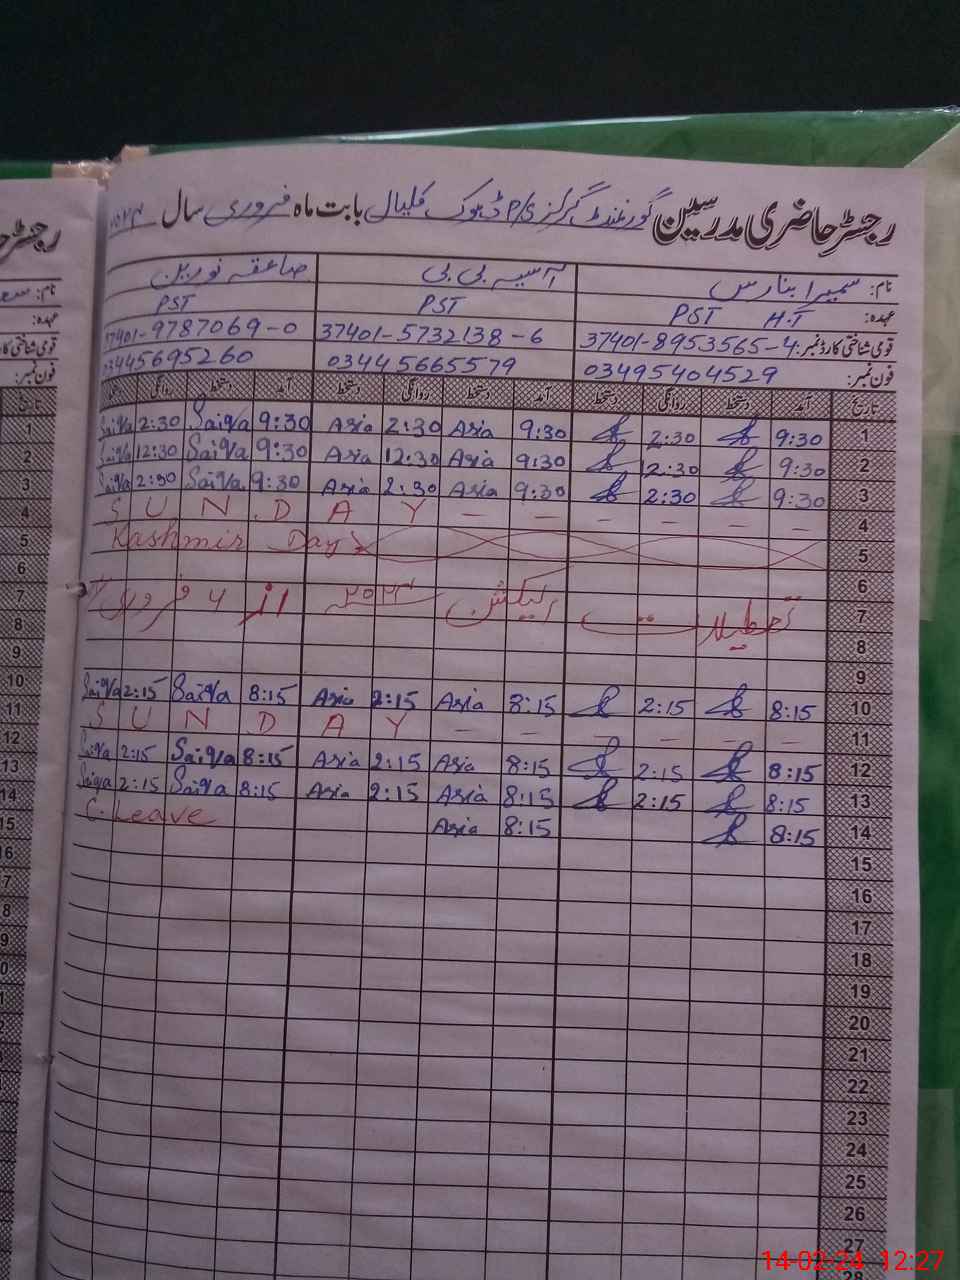 رجسٹر حاضری مدرسین گورنمنٹ گرلز P/S ڈھوک کلیال بابت ماہ فروری سال ۲۰۲۴
نام: سمیرا بنارس آسیہ بی بی صاعقہ نورین
عہدہ: PST H.T PST PST
قومی شناختی کارڈ نمبر: 37401-8953565-4 37401-5732138-6 37401-9787069-0
فون نمبر: 03495404529 03445665579 03445695260
تاریخ آمد دستخط روانگی دستخط آمد دستخط روانگی دستخط آمد دستخط روانگی دستخط
1 9:30 2:30 9:30 Asia 2:30 Asia 9:30 Saiqa 2:30 Saiqa
2 9:30 12:30 9:30 Asia 12:30 Asia 9:30 Saiqa 12:30 Saiqa
3 9:30 2:30 9:30 Asia 2:30 Asia 9:30 Saiqa 2:30 Saiqa
4 S U N D A Y – – – – – –
5 Kashmir Day
6
7 تعطیلات الیکشن ۲۰۲۴ از ۶ فروری
8
9
10 8:15 2:15 8:15 Asia 2:15 Asia 8:15 Saiqa 2:15 Saiqa
11 S U N D A Y – – – – – –
12 8:15 2:15 8:15 Asia 2:15 Asia 8:15 Saiqa 2:15 Saiqa
13 8:15 2:15 8:15 Asia 2:15 Asia 8:15 Saiqa 2:15 Saiqa
14 8:15 8:15 Asia C. Leave
15
16
17
18
19
20
21
22
23
24
25
26
27
28
14-02-24 12:27